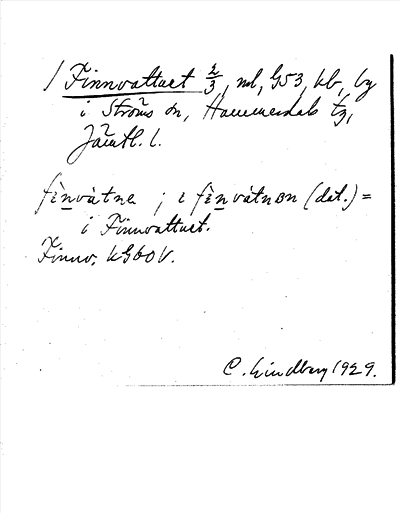 / Finnvattnet 2/3, nl, G53, kb, by
i Ströms sn, Hammerdals tg,
Jämtl. l.
fìnvàtne ; ɩ fìnvàtnɘn (dat.) =
i Finnvattnet.
Finnv. kG60V.
C. Lindberg 1929.